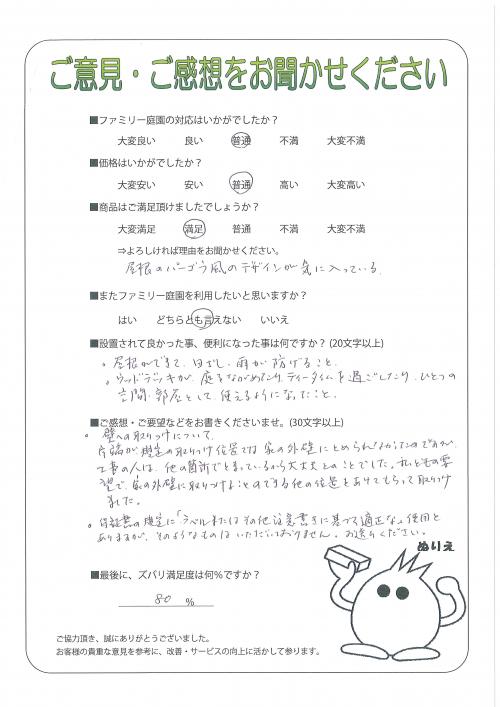 ご意見・ご感想をお聞かせください
■ファミリー庭園の対応はいかがでしたか？
大変良い 良い 普通 不満 大変不満
■価格はいかがでしたか？
大変安い 安い 普通 高い 大変高い
■商品はご満足頂けましたでしょうか？
大変満足 満足 普通 不満 大変不満
⇒よろしければ理由をお聞かせください。
屋根のパーゴラ風のデザインが気に入っている。
■またファミリー庭園を利用したいと思いますか？
はい どちらとも言えない いいえ
■設置されて良かった事、便利になった事は何ですか？(20文字以上)
。屋根ができて、日ざし、雨が防げること。
。ウッドデッキが、庭をながめたり、ティータイムを過ごしたり、ひとつの
空間・部屋として使えるようになったこと。
■ご感想・ご要望などをお書きくださいませ。(30文字以上)
。壁への取りつけについて、
両端が規定の取りつけ位置では家の外壁にとめられなかったのですが、
工事の人は、他の箇所でとまっているから大丈夫とのことでした。私どもの要
望で、家の外壁に取りつけることのできる他の位置とあわせてもらって取りつけ
ました。
。保証書の規定に「ラベルまたはその他注意書きに基づく適正な」使用と
ありますが、そのようなものはいただいておりません。お送りください。
ぬりえ
■最後に、ズバリ満足度は何％ですか？
80 ％
ご協力頂き、誠にありがとうございました。
お客様の貴重な意見を参考に、改善・サービスの向上に活かして参ります。